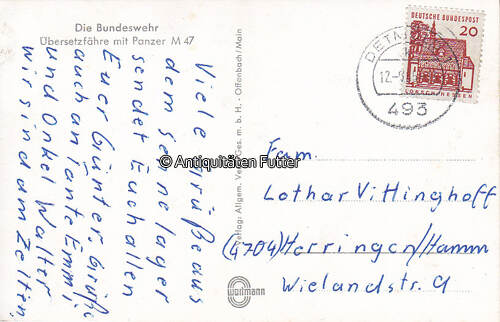 Die Bundeswehr
Übersetzfähre mit Panzer M 47
Viele Grüße aus
dem Sennelager
sendet Euch allen
Euer Günter. Grüße
auch an Tante Emmi
und Onkel Walter
wir sind am Zelten.
Verlag: Allgem. Verl. Ges. m. b. H. - Offenbach/Main
wortmann
DEUTSCHE BUNDESPOST
20
LORSCH/HESSEN
DETMOLD
12.-9.
493
Fam.
Lothar Vittinghoff
(4704) Herringen/Hamm
Wielandstr. 9
© Antiquitäten Futter